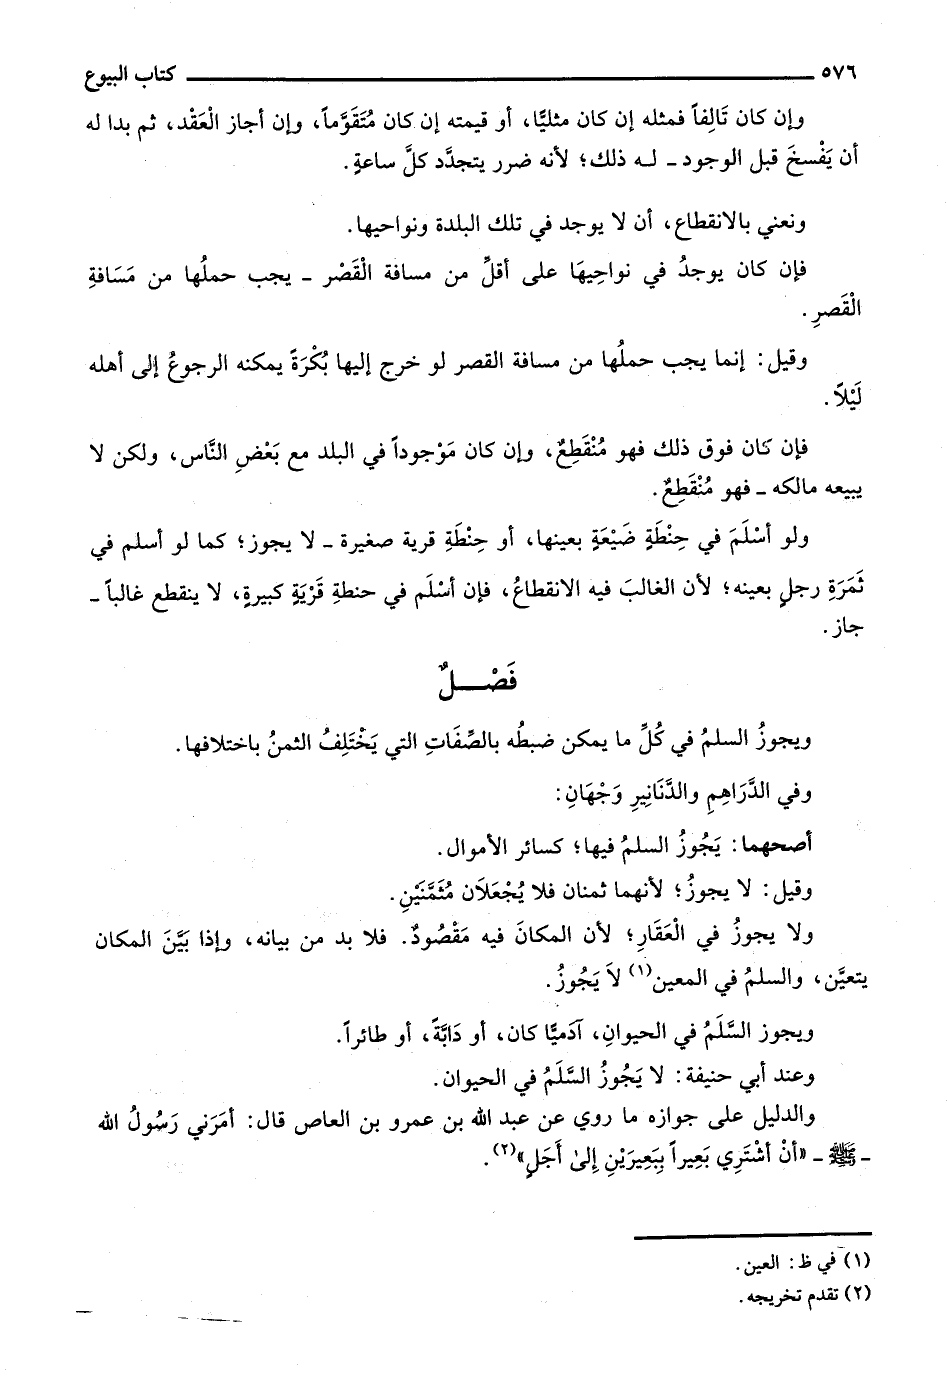 ٥٧٦ كتاب البيوع
وإن كان تَالِفاً فمثله إن كان مثليًّا، أو قيمته إن كان مُتَقَوَّماً، وإن أجاز الْعَقْد، ثم بدا له
أن يَفْسخَ قبل الوجود ـ لـه ذلك؛ لأنه ضرر يتجدَّد كلَّ ساعةٍ.
ونعني بالانقطاع، أن لا يوجد في تلك البلدة ونواحيها.
فإن كان يوجدُ في نواحِيهَا على أقلِّ من مسافة الْقَصْر ـ يجب حملُها من مَسَافةِ
الْقَصرِ.
وقيل: إنما يجب حملُها من مسافة القصر لو خرج إليها بُكْرَةً يمكنه الرجوعُ إلى أهله
لَيْلاً.
فإن كان فوق ذلك فهو مُنْقَطِعٌ، وإن كان مَوْجوداً في البلد مع بَعْضِ النَّاس، ولكن لا
يبيعه مالكه ـ فهو مُنْقَطِعٌ.
ولو أسْلَمَ في حِنْطَةٍ ضَيْعَةٍ بعينها، أو حِنْطَةِ قرية صغيرة ـ لا يجوز؛ كما لو أسلم في
ثَمَرَةِ رجلٍ بعينه؛ لأن الغالبَ فيه الانقطاعُ، فإن أسْلَم في حنطةِ قَرْيَةٍ كبيرةٍ، لا ينقطع غالباً ـ
جاز.
فَصْـــلٌ
ويجوزُ السلمُ في كُلِّ ما يمكن ضبطُه بالصِّفَاتِ التي يَخْتَلِفُ الثمنُ باختلافها.
وفي الدَّرَاهِمِ والدَّنَانِيرِ وَجْهَانِ:
أصحهما: يَجُوزُ السلمُ فيها؛ كسائر الأموال.
وقيل: لا يجوزُ؛ لأنهما ثمنان فلا يُجْعَلاَن مُثَمَّنَيْنِ.
ولا يجوزُ في الْعَقَارِ؛ لأن المكانَ فيه مَقْصُودٌ. فلا بد من بيانه، وإذا بَيَّنَ المكان
يتعيَّن، والسلمُ في المعين(١) لاَ يَجُوزُ.
ويجوز السَّلَمُ في الحيوانِ، آدَميًّا كان، أو دَابَّةً، أو طائراً.
وعند أبي حنيفة: لا يَجُوزُ السَّلَمُ في الحيوان.
والدليل على جوازه ما روي عن عبد الله بن عمرو بن العاص قال: أمَرَني رَسُولُ الله
ـ ﷺ ـ «أنْ أشْتَرِي بَعِيراً بِبَعِيرَيْنِ إِلىٰ أَجَلٍ»(٢).
(١) في ظ: العين.
(٢) تقدم تخريجه.